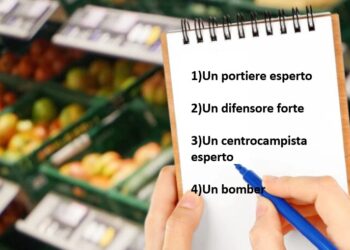 1)Un portiere esperto
2)Un difensore forte
3)Un centrocampista
esperto
4)Un bomber